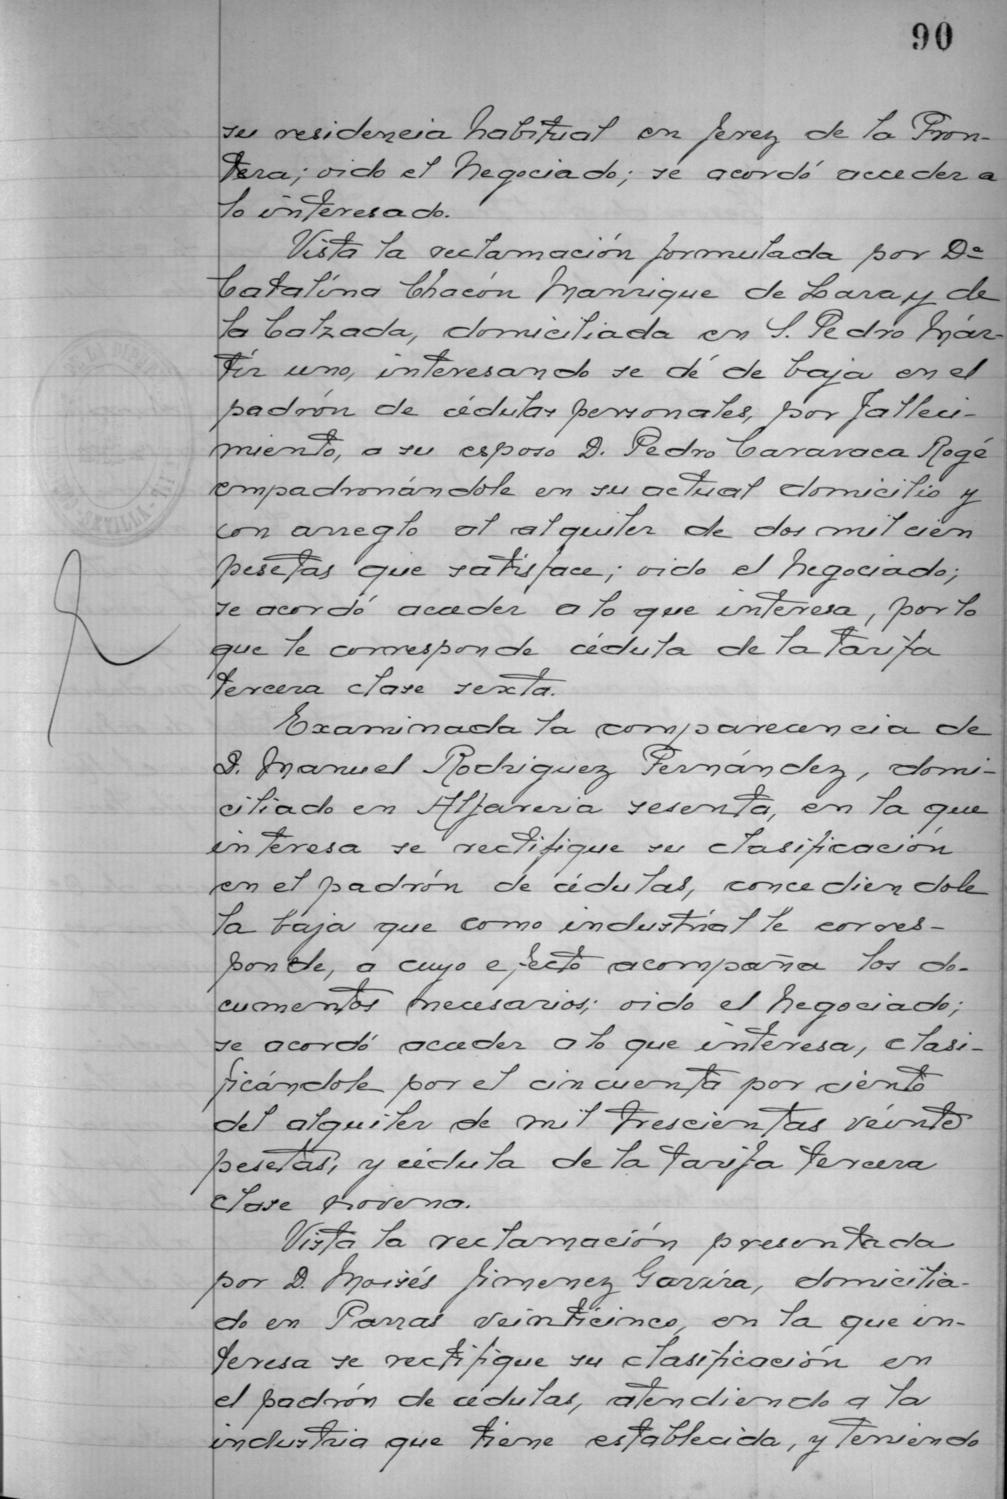 90
su residencia habitual en Jerez de la Fron-
tera; oido el Negociado; se acordó acceder a
lo interesado.
Vista la reclamación formulada por Dª
Catalína Chacón Manrique de Lara y de
la Calzada, domiciliada en S. Pedro Már-
tír uno, interesando se dé de baja en el
padrón de cédulas personales, por falleci-
miento, a su esposo D. Pedro Caravaca Rogé
empadronándole en su actual domicilio y
con arreglo al alquiler de dos mil cien
pesetas que satisface; oido el Negociado;
se acordó acceder a lo que interesa, por lo
que le corresponde cédula de la tarifa
tercera clase sexta.
Examinada la comparecencia de
D. Manuel Rodriguez Fernández, domi-
ciliado en Alfareria sesenta, en la que
interesa se rectifique su clasificación
en el padrón de cédulas, concediendole
la baja que como industrial le corres-
ponde, a cuyo efecto acompaña los do-
cumentos necesarios; oido el Negociado;
se acordó acceder a lo que interesa, clasi-
ficándole por el cincuenta por ciento
del alquiler de mil trescientas veinte
pesetas, y cédula de la tarifa tercera
clase novena.
Vista la reclamación presentada
por D. Moisés Jimenez Gavira, domicilia-
do en Parras veinticinco, en la que in-
teresa se rectifique su clasificación en
el padrón de cédulas, atendiendo a la
industria que tiene establecida, y teniendo